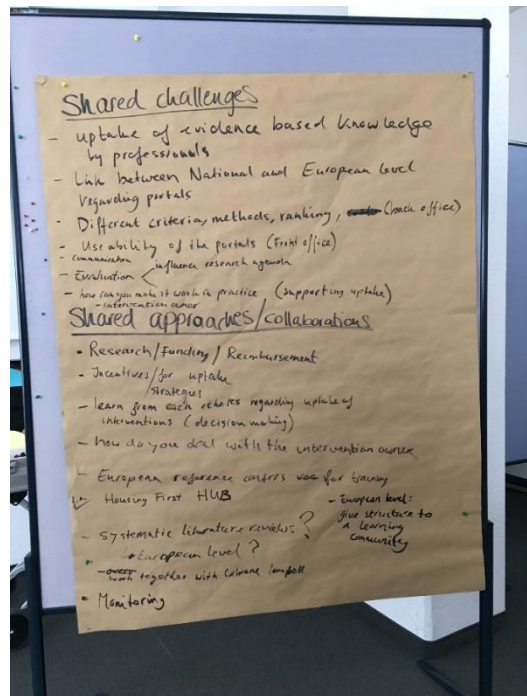 Shared challenges
- uptake of evidence based knowledge
by professionals
- Link between National and European level
regarding portals
- Different criteria, methods, ranking, (back office)
- Useability of the portals (Front office)
communication
- Evaluation < influence research agenda
- how can you make it work in practice (supporting uptake)
- intervention owner
Shared approaches/collaborations
- Research/funding/Reimbursement
- Incentives/for uptake
strategies
- learn from each others regarding uptake of
interventions (decision making)
- how do you deal with the intervention owner
- European reference centres for training
Housing First HUB
- European level:
give structure to
a learning
community
- Systematic literature reviews?
European level?
- work together with
- Monitoring